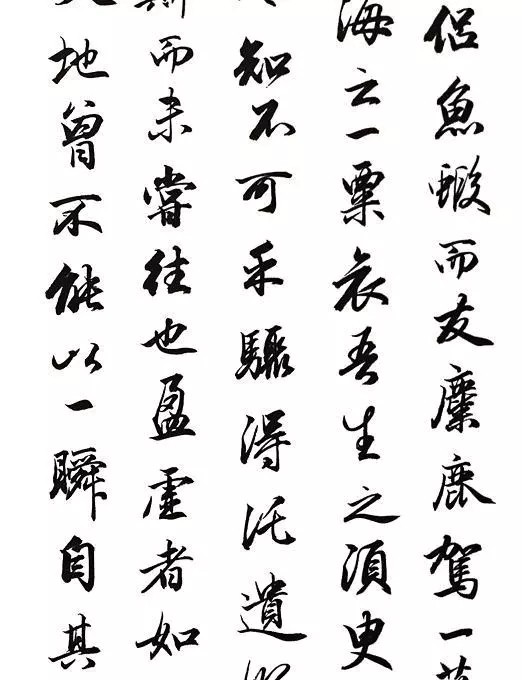 侣魚蝦而友麋鹿駕一
海之一粟哀吾生之須臾
知不可乎驟得託遺
斯而未嘗往也盈虛者如
地曾不能以一瞬自其